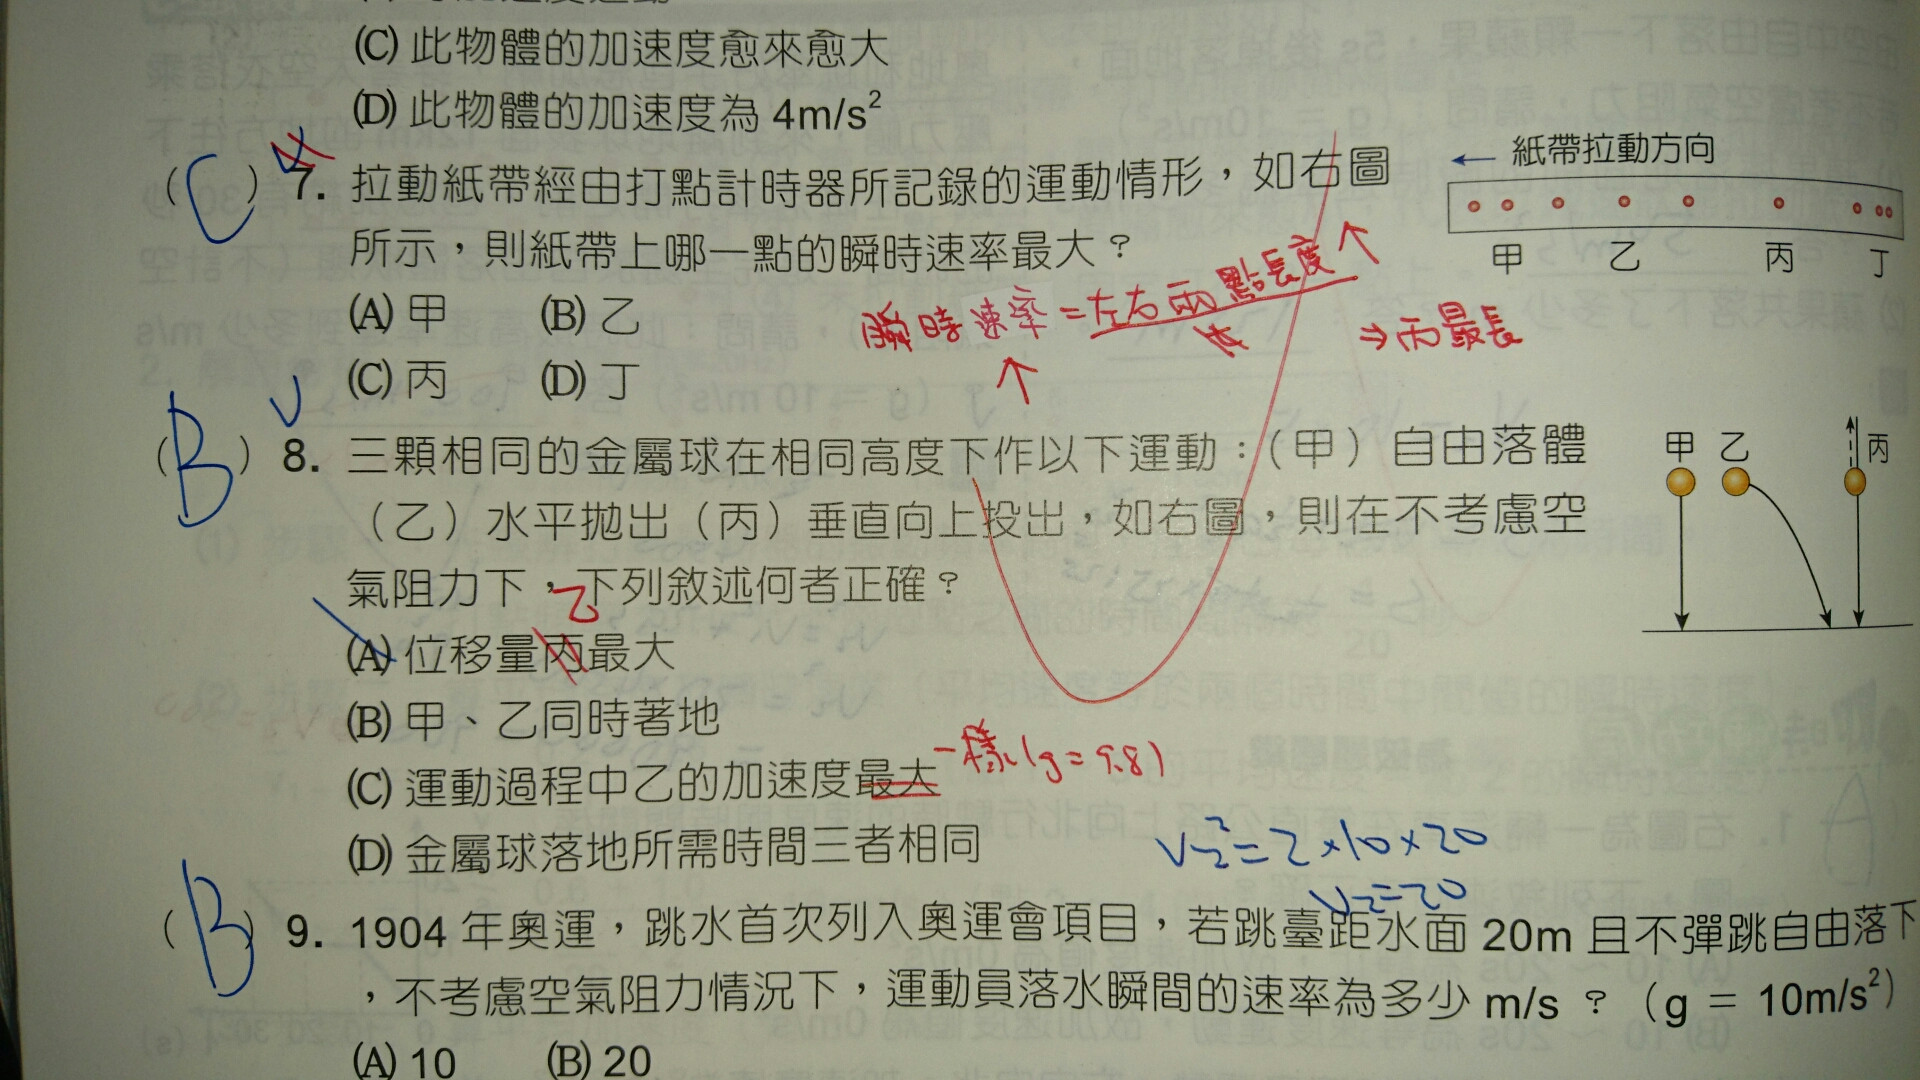 (C) 此物體的加速度愈來愈大
(D) 此物體的加速度為 4m/s²
( C ) 7. 拉動紙帶經由打點計時器所記錄的運動情形，如右圖
所示，則紙帶上哪一點的瞬時速率最大？
← 紙帶拉動方向
甲 乙 丙 丁
瞬時速率=左右兩點長度↑
↑
⇒丙最長
(A) 甲 (B) 乙
(C) 丙 (D) 丁
( B ) 8. 三顆相同的金屬球在相同高度下作以下運動：（甲）自由落體
（乙）水平拋出（丙）垂直向上投出，如右圖，則在不考慮空
氣阻力下，下列敘述何者正確？
甲 乙 丙
乙
(A) 位移量丙最大
(B) 甲、乙同時著地
(C) 運動過程中乙的加速度最大
一樣(g=9.8)
(D) 金屬球落地所需時間三者相同
V₂²=2×10×20
V₂=20
( B ) 9. 1904 年奧運，跳水首次列入奧運會項目，若跳臺距水面 20m 且不彈跳自由落下
，不考慮空氣阻力情況下，運動員落水瞬間的速率為多少 m/s ？（g = 10m/s²）
(A) 10 (B) 20